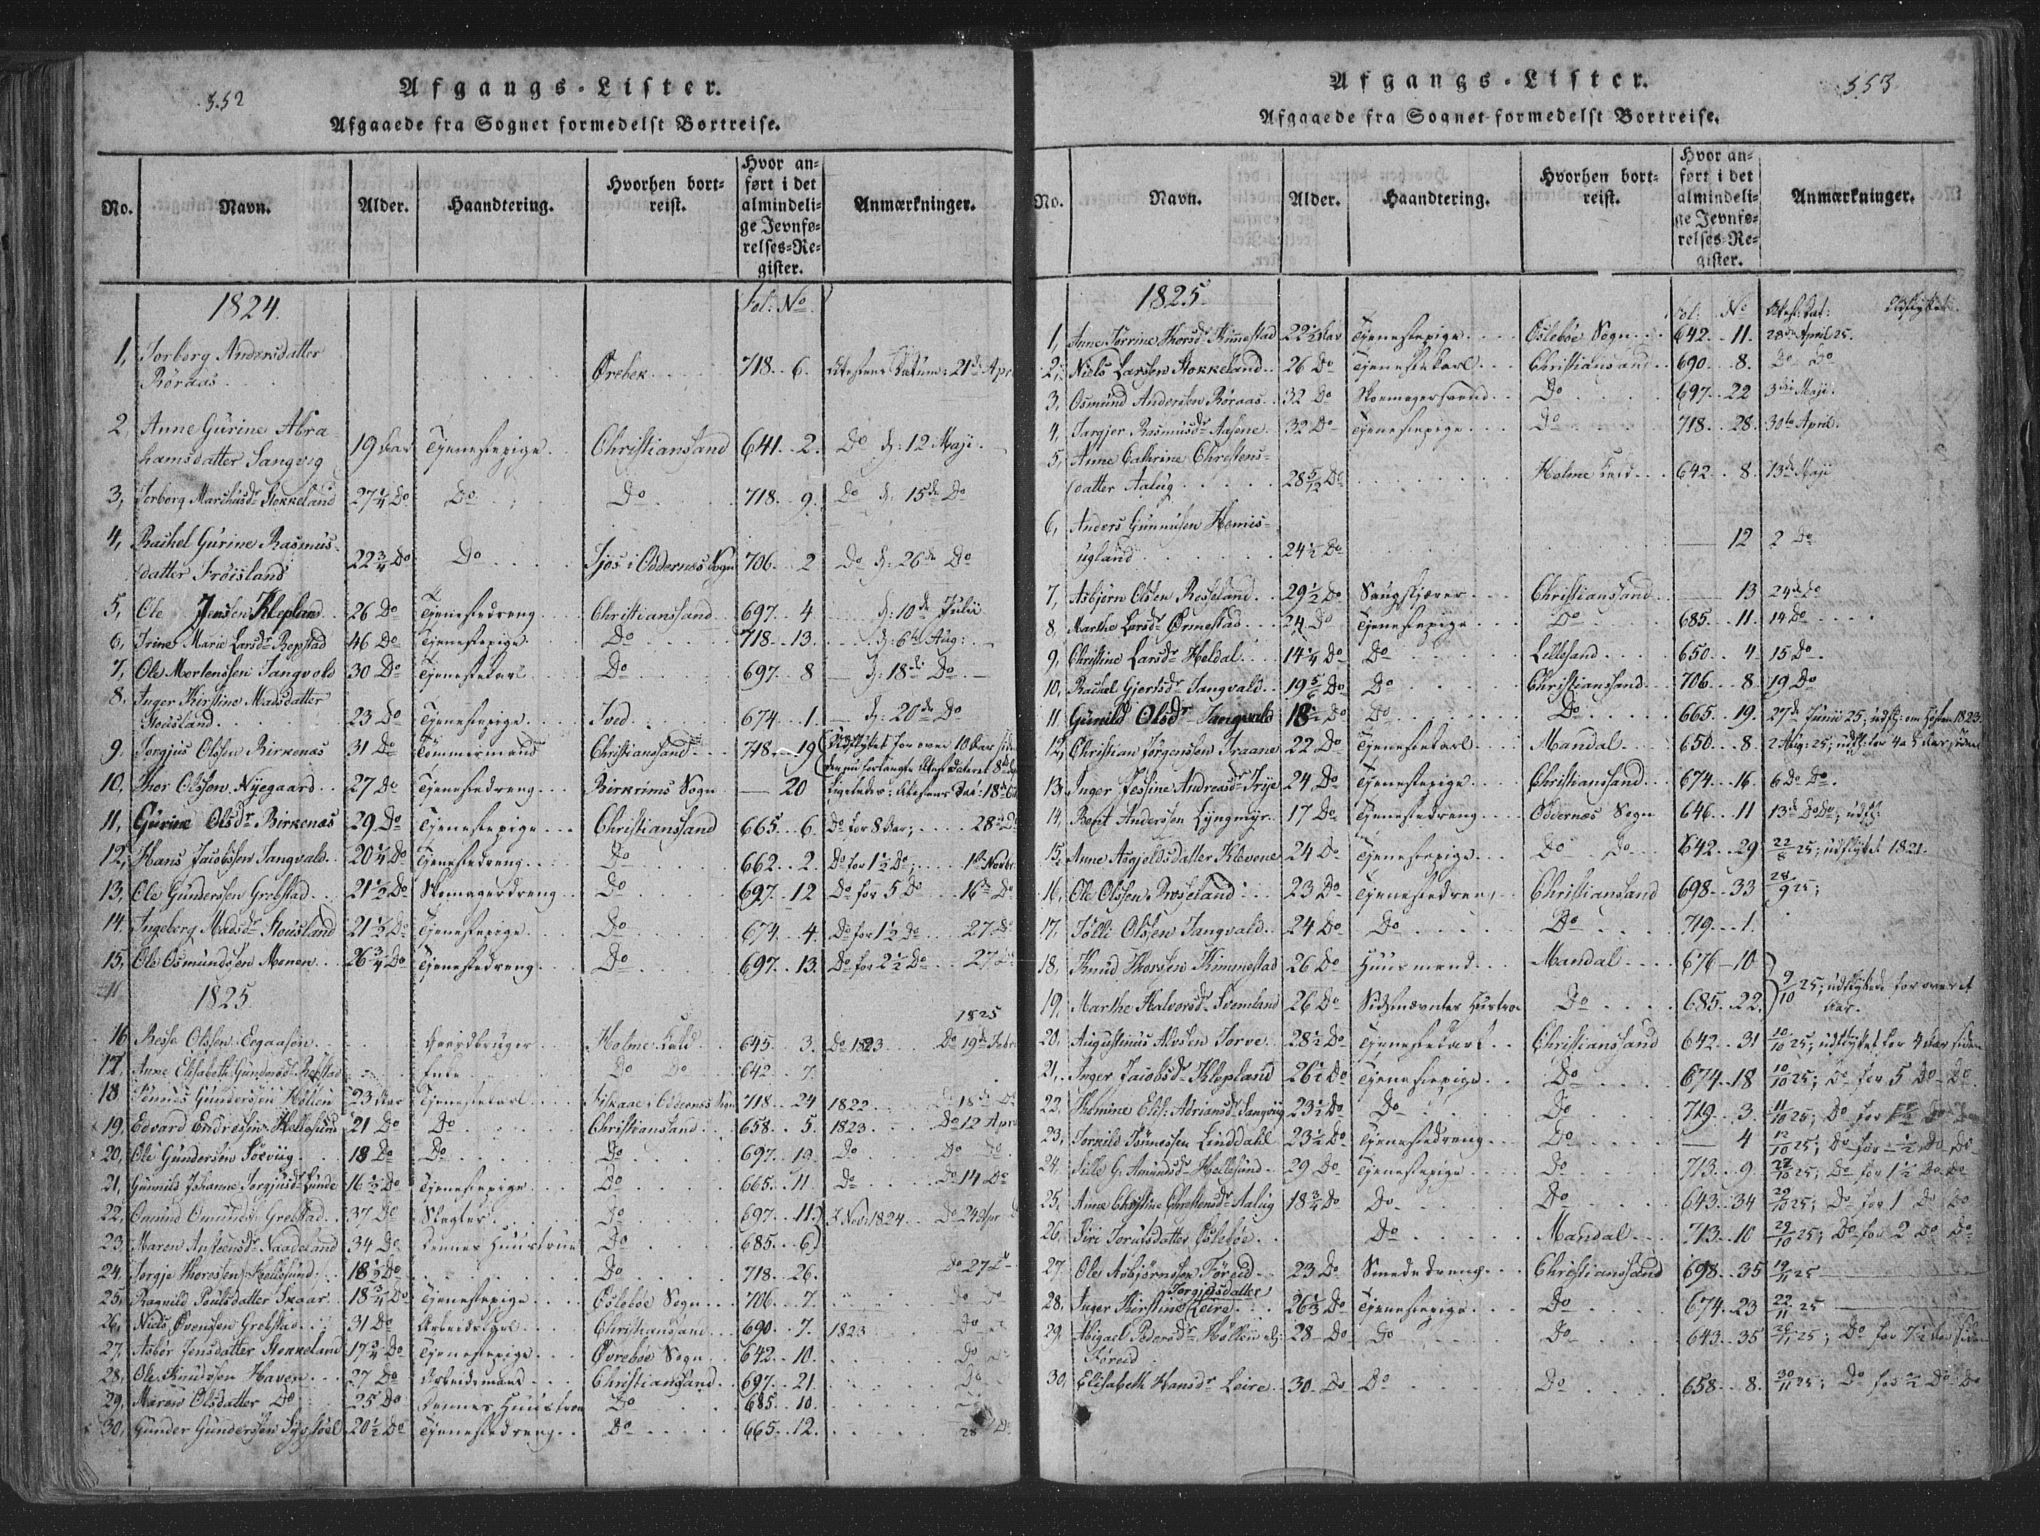 552
Afgangs-Lister.
Afgaaede fra Sognet formedelst Bortreise.
No. Navn. Alder. Haandtering. Hvorhen bortreist. Hvor anført i det almindelige Jevnførelses-Register. Anmærkninger.
1824. Fol: No
1, Torborg Andersdatter
Røraas Ørebek 718. 6. Attestens Datum: 21de Apr
2, Anne Gurine Abra
hamsdatter Sangvig 19 Aar Tjenestepige Christiansand 641. 2. Do d: 12 Maji
3, Torborg Marchusdr Stokkeland 27¼ Do Do Do 718. 9. Do d: 15de Do
4, Rachel Gurine Rasmus-
datter Frøisland 22¾ Do Do Sjøs i Oddernes Sogn 706. 2 Do d: 26de Do
5, Ole Jensen Klepland 26 Do Tjenestedreng Christianssand 697. 4 d: 10de Julii
6, Trine Marie Larsdr Repstad 46 Do Tjenestepige Do 718. 13. d: 6te Aug:
7, Ole Mortenssen Tangvold 30 Do Tjenestekarl Do 697. 8 d: 18de Do
8. Inger Kirstine Madsdatter
Stousland 23 Do Tjenestepige Tved 674. 1. d: 20de Do
9. Torgjus Olsen Birkenes 31 Do Tømmermand Christianssand 718. 19 Udflyttet for over 10 Aar siden
den nu forlangte Attest dateret 8de
10. Thor Olssen Nyegaard 27 Do Tjenestedreng Birkrims Sogn — 20 Ligeledes; Attestens Dat: 18de
11, Gurine Olsdr Birkenes 29 Do Tjenestepige Christianssand 665. 6. Do for 8 Aar; 28de Do
12, Hans Jacobssen Tangvald 20¼ Do Tjenestedreng Do 662. 2. Do for 1½ Do; 1te Novbr
13, Ole Gunderssen Grebstad 21½ Do Skomagerdreng Do 697. 12 Do for 5 Do 16de Do
14. Ingeberg Madsdr Stousland 21½ Do Tjenestepige Do 674. 4. Do for 1½ Do 27 Do
15, Ole Osmundssen Monen 26¾ Do Tjenestedreng Do 697. 13. Do for 2½ Do 27
1825 1825
16 Besse Olssen Egaasen Gaardbruger Holme Field 645. 3. Do 1823 Do 19de Febr
17, Anne Elisabeth Gundersdr Repstad Enke Do Do 642. 7.
18 Tønnes Gunderssen Høllen 23 Aar Tjenestekarl Oddernes Sogn 718. 24 1822 18de Do
19, Edvard Endressen Hellesund 21 Do Do Christiansand 658. 5. 1823. Do 12 Apr
20, Ole Gundersen Toevüg 18 Do Do Do 697. 19. Do Do Do
21, Gunnild Johanne Torgjusdr Lunde 16½ Do Tjenestepige Do 665. 11 Do Do 14 Do
22, Omund Omunds Grebstad 37 Do Slagter Do 697. 11 Nov: 1824 Do 24 Apr
23. Maren Anstensdr Naadeland 34 Do Dennes Huustrue Do 685. 6
24. Torgje Thoressen Hellesund 18½ Do Do 718. 26. Do 27
25, Ragnild Poulsdatter Skaar 18¾ Do Tjenestepige Øslebøe Sogn 706. 7. Do Do
26, Niels Evensen Grebstad 31 Do Arbeidskarl Christiansand 690. 7. 1823 Do
27. Asbør Jensdatter Stokkeland 17¾ Do Tjenestepige Øvrebøe Sogn 642. 10. Do
28, Ole Knudssen Haven 27 Do Arbeidsmand Christianssand 697. 21. Do
29, Maren Olsdatter Do 25 Do Dennes Huustrue Do 685. 10.
30, Gunder Gunderssen 20½ Do Tjenestedreng Do 665. 12. 28 Do
553
Afgangs-Lister.
Afgaaede fra Sognet formedelst Bortreise.
No. Navn. Alder. Haandtering. Hvorhen bortreist. Hvor anført i det almindelige Jevnførelses-Register. Anmærkninger.
1825. Fol: No Attest: Dat: Udflyttet
1, Anne Torrine Thorsdr Kimestad 22½ Aar Tjenestepige Øslebøe Sogn 642. 11. 28de April 25.
2, Niels Larsen Stokkeland 26 Do Tjenestekarl Christiansand 690. 8. Do Do
3, Osmund Andersen Røraas 32 Do Skomagersvend Do 697. 22 3die Maji
4, Targjer Rasmusdr Aasene 32 Do Tjenestepige Do 718. 28. 30te April.
5, Anne Cathrine Christens-
datter Aalug 28 5/12 Do Holme Field 642. 8. 13de Maji
6, Anders Gunnulsen Homis-
ugland 24½ Do — 12 2 Do
7, Asbjørn Olsen Resseland 29½ Do Saugskjærer Christianssand — 13 24de Do
8, Marthe Larsdr Ormestad 24 Do Tjenestepige Do 685. 11. 14 Do
9, Christine Larsdr Heldal 14¼ Do Do Lillesand 650. 4. 15 Do
10, Rachel Gjertsdr Tangvald 19 5/6 Do Do Christianssand 706. 8 19 Do
11, Gunild Olsdr Tangvald 18½ Do Do Do 665. 19. 27de Junii 25; udfl: om Høsten 1823
12, Christian Jørgenssen Traane 22 Do Tjenestekarl Mandal 650. 8. 2 Aug: 25; udfl: for 4 a 5 Aar siden
13, Inger Jessine Andreasdr Frøje 24 Do Tjenestepige Christianssand 674. 16. 6 Do Do.
14, Bent Andersen Lyngmyr 17 Do Tjenestedreng Oddernes Sogn 646. 11 13de Do Do; udfl:
15, Anne Asgjeldsdatter Klevene 24 Do Tjenestepige Do Do 642. 29 22/8 25; udflyttet 1821.
16, Ole Olssen Roseland 23 Do Tjenestedreng Christiansand 698. 33 28/9 25;
17. Tølli Olssen Tangvald 24 Do Do Do 719. 1.
18, Knud Thorsen Kimmestad 26 Do Huusmand Mandal 676. 10 9/10 25; udflyttede for over et
Aar.
19, Marthe Halvorsdr Svemland 26 Do Sidstnævntes Hustroe Do 685. 22.
20, Augustinus Alvsen Torve 28½ Do Tjenestekarl Christianssand 642. 31 10/10 25; udflyttet for 4 Aar siden
21, Inger Jacobsdr Klepland 26½ Do Tjenestepige Do 674. 18 10/10 25; Do for 5 Do Do
22, Thomine Elis: Adriansdr Sangvig 23½ Do Do Do 719. 3. 11/10 25; Do for 1½ Do
23, Torkild Tønnessen Linddahl 23½ Do Tjenestedreng Do — 4 12/10 25; Do for ½ Do Do
24, Sille G. Amundsdr Hellesund 29 Do Tjenestepige Do 713. 9. 22/10 25; Do for 1½ Do Do
25, Anne Christine Christensdr Aalug 18¾ Do Do Do 643. 34 29/10 25; Do for 1 Do Do
26, Siri Terulsdatter Øslebøe Do Mandal 713. 10 29/10 25; Do for 2 Do Do
27, Ole Asbjørnssen Føreid 23 Do Smededreng Christianssand 698. 35 19/11 25
28, Inger Kirstine Torgjusdatter Leire 26⅓ Do Tjenestepige Do 674. 23 22/11 25
29, Abigael Pedersdr Høllen 28 Do Do Do 643. 35 26/11 25; Do for 7½ Aar siden
Føreid
30, Elisabeth Hansdr Leire 30 Do Do Do 658. 8. 30/11 25; Do for ½ Do Do